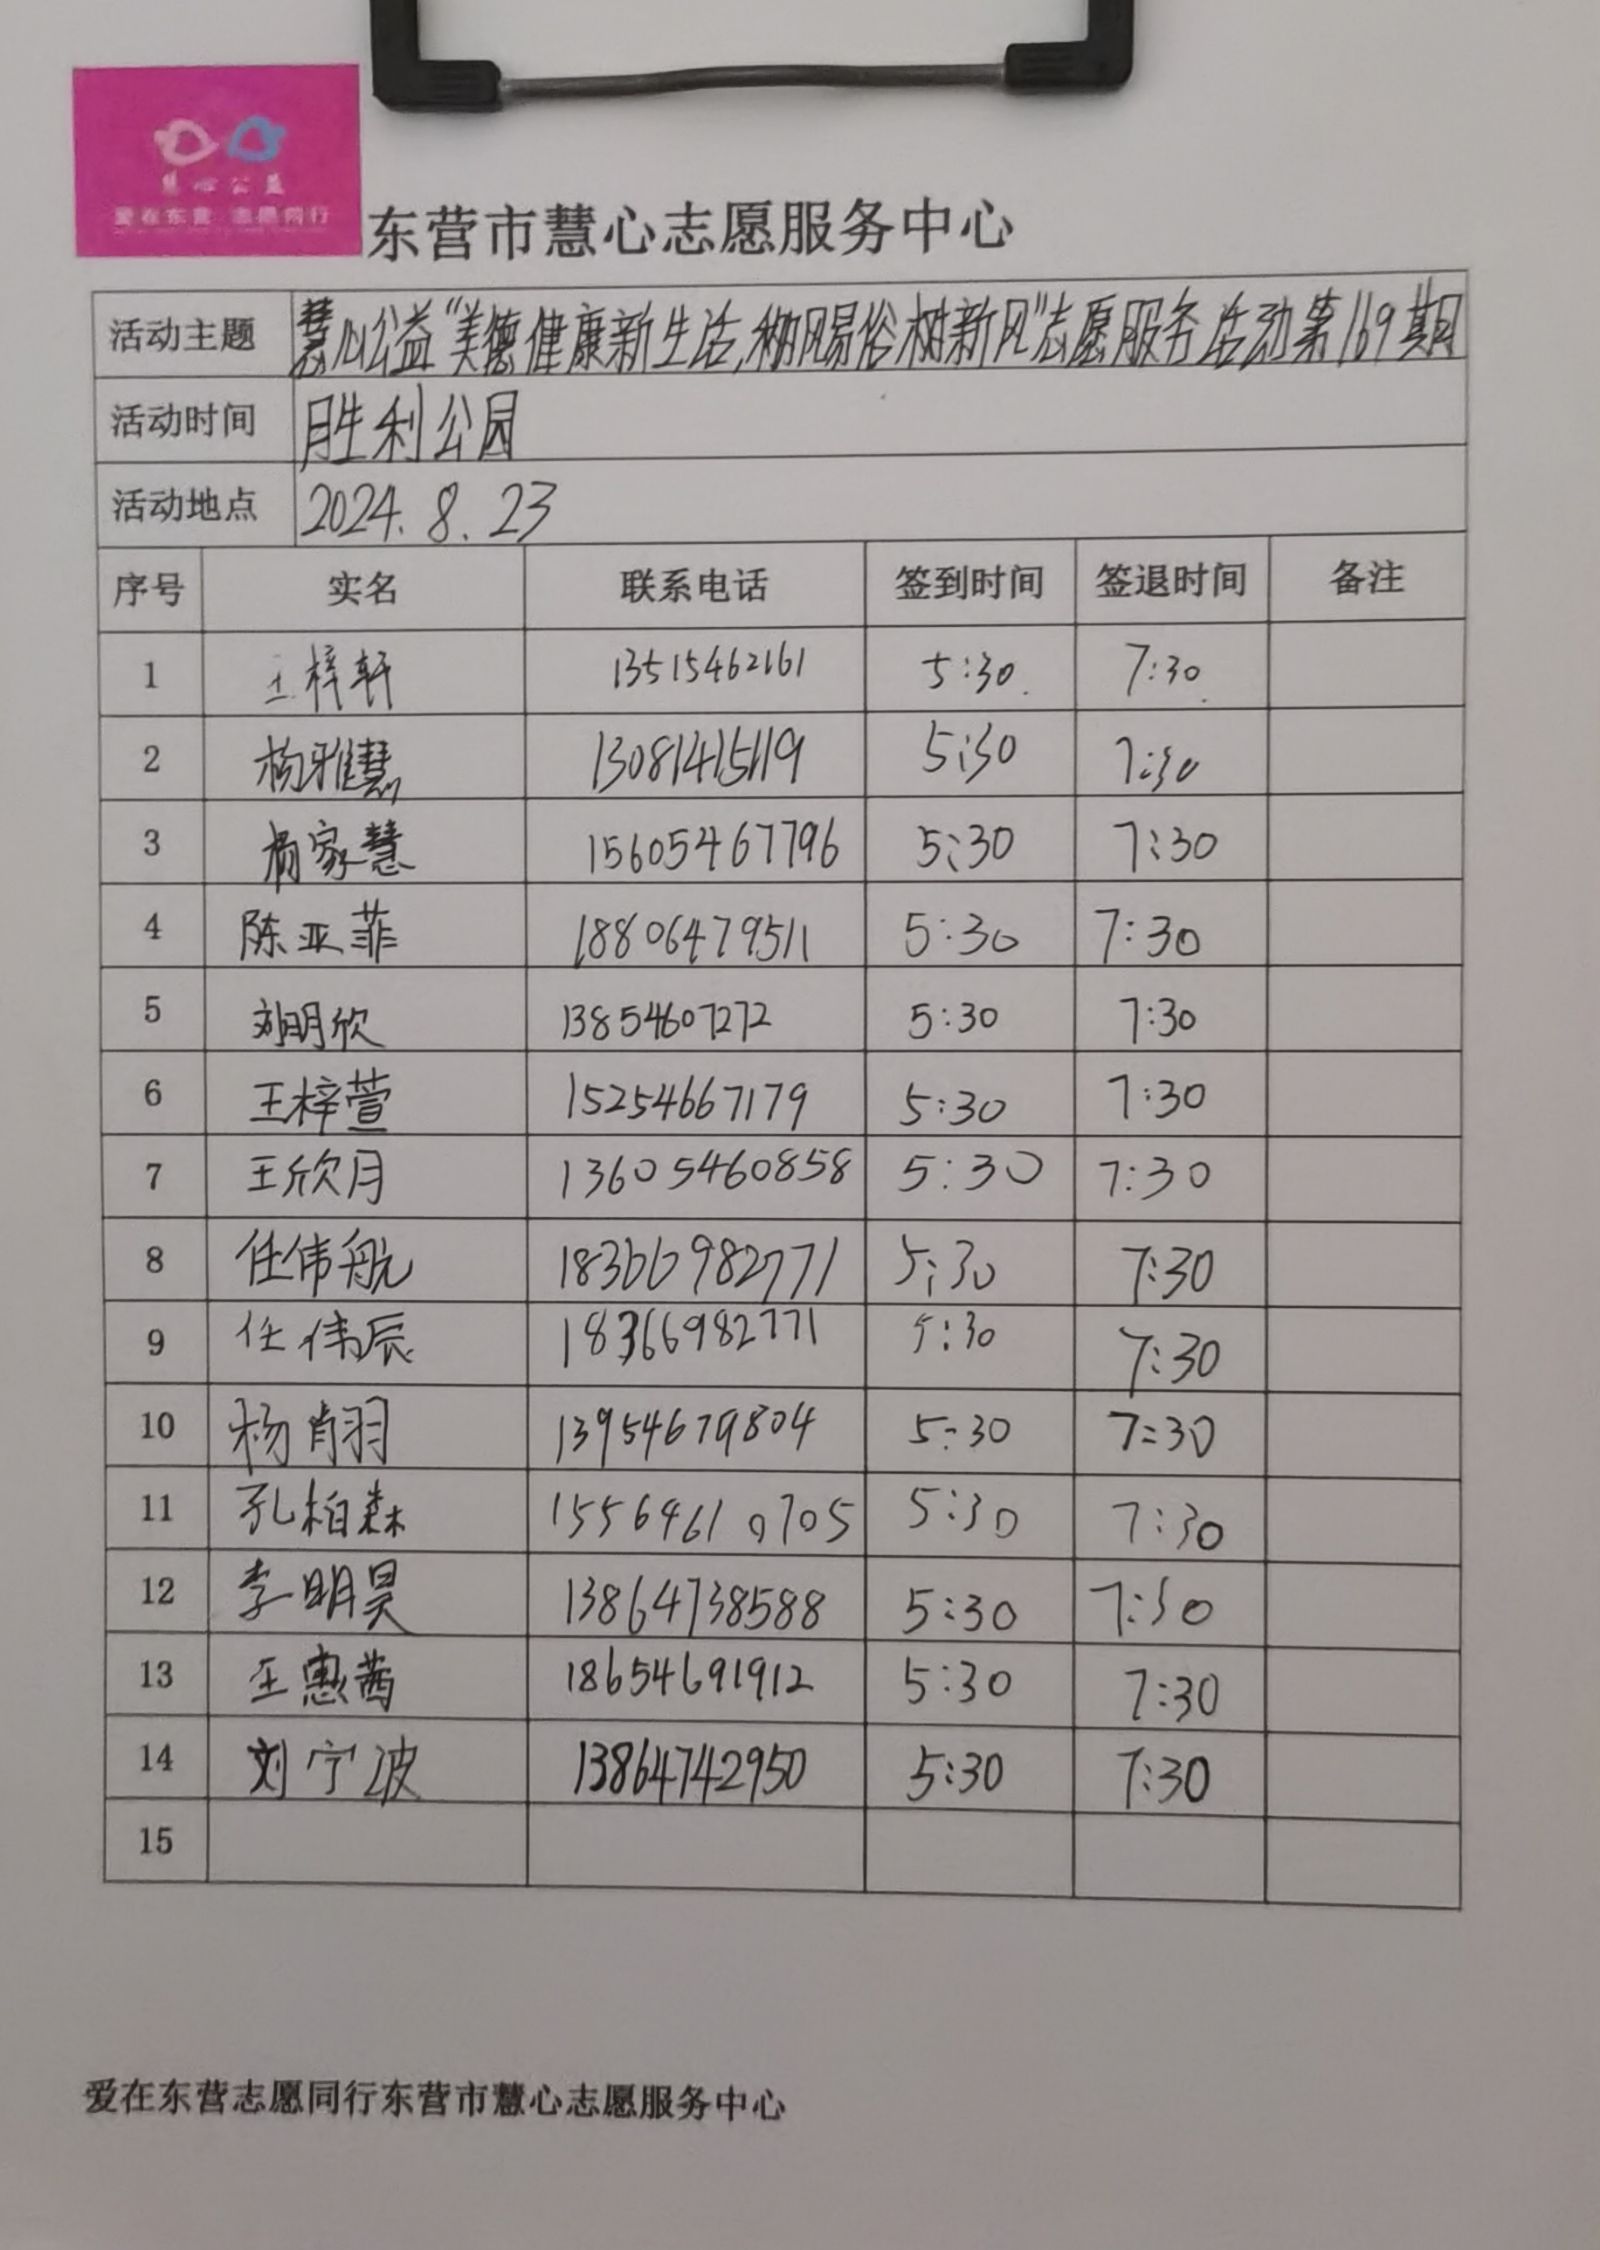 慧心公益
爱在东营 志愿同行
东营市慧心志愿服务中心
活动主题 慧心公益“美德健康新生活,移风易俗树新风”志愿服务活动第169期
活动时间 胜利公园
活动地点 2024.8.23
序号 实名 联系电话 签到时间 签退时间 备注
1 王梓轩 13515462161 5:30 7:30
2 杨雅慧 13081415119 5:30 7:30
3 杨家慧 15605467796 5:30 7:30
4 陈亚菲 18806479511 5:30 7:30
5 刘明欣 13854607272 5:30 7:30
6 王梓萱 15254667179 5:30 7:30
7 王欣月 13605460858 5:30 7:30
8 任伟航 18366982771 5:30 7:30
9 任伟辰 18366982771 5:30 7:30
10 杨肖羽 13954679804 5:30 7:30
11 孔柏森 15564610705 5:30 7:30
12 李明昊 13864738588 5:30 7:30
13 王惠茜 18654691912 5:30 7:30
14 刘宁波 13864742950 5:30 7:30
15
爱在东营志愿同行东营市慧心志愿服务中心